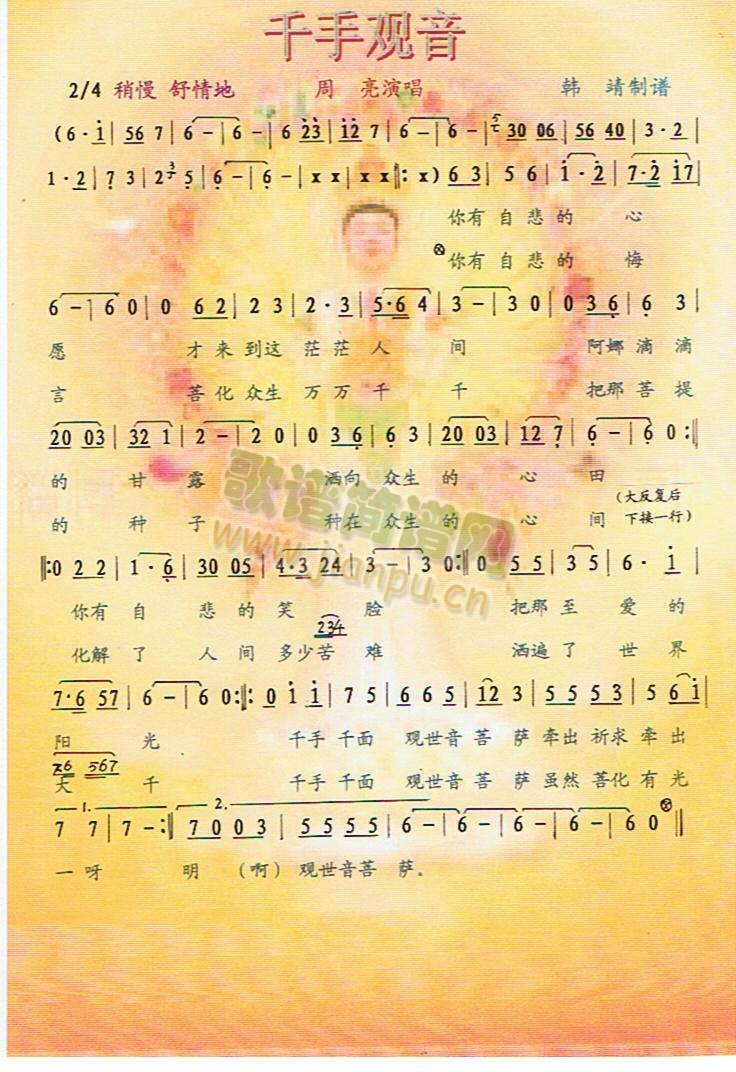 千手观音
2/4 稍慢 舒情地 周 亮演唱 韩 靖制谱
(6·i| 56 7| 6 —| 6 —| 6 23| 12 7| 6 —| 6 —| 30 06| 56 40| 3·2|
1·2| 7 3| 2 5| 6 —| 6 —| x x| x x‖: x) 6 3| 5 6| i·2| 7·2 i7|
你有 自 悲 的 心
你有 自 悲 的 悔
6 —| 6 0| 0 6 2| 2 3| 2·3| 5·6 4| 3 —| 3 0| 0 3 6| 6 3|
愿 才 来 到 这 茫 茫 人 间 阿娜 滴 滴
言 菩 化 众生 万 万 千 千 把那 菩 提
20 03| 32 1| 2 —| 2 0| 0 3 6| 6 3| 20 03| 12 7| 6 —| 6 0:‖
的 甘 露 洒向 众生 的 心 田
的 种 子 种在 众生 的 心 间
(大反复后
下接一行)
‖:0 2 2| 1·6| 30 05| 4·3 24| 3 —| 3 0:‖ 0 5 5| 3 5| 6·i|
你有 自 悲 的 笑 脸 把那 至 爱 的
234
化解 了 人 间 多少苦 难 洒遍 了 世 界
7·6 57| 6 —| 6 0:‖: 0 i i| 7 5| 6 6 5| 12 3| 5 5 5 3| 5 6 i|
阳 光 千手 千面 观世音 菩 萨 牵出 祈求 牵出
76 567
大 千 千手 千面 观世音 菩 萨 虽然 菩化 有 光
1. 2.
7 7| 7 —:‖ 7 0 0 3| 5 5 5 5| 6 —| 6 —| 6 —| 6 0‖
一 呀 明 (啊) 观世音菩 萨。
歌谱简谱网
www.jianpu.cn